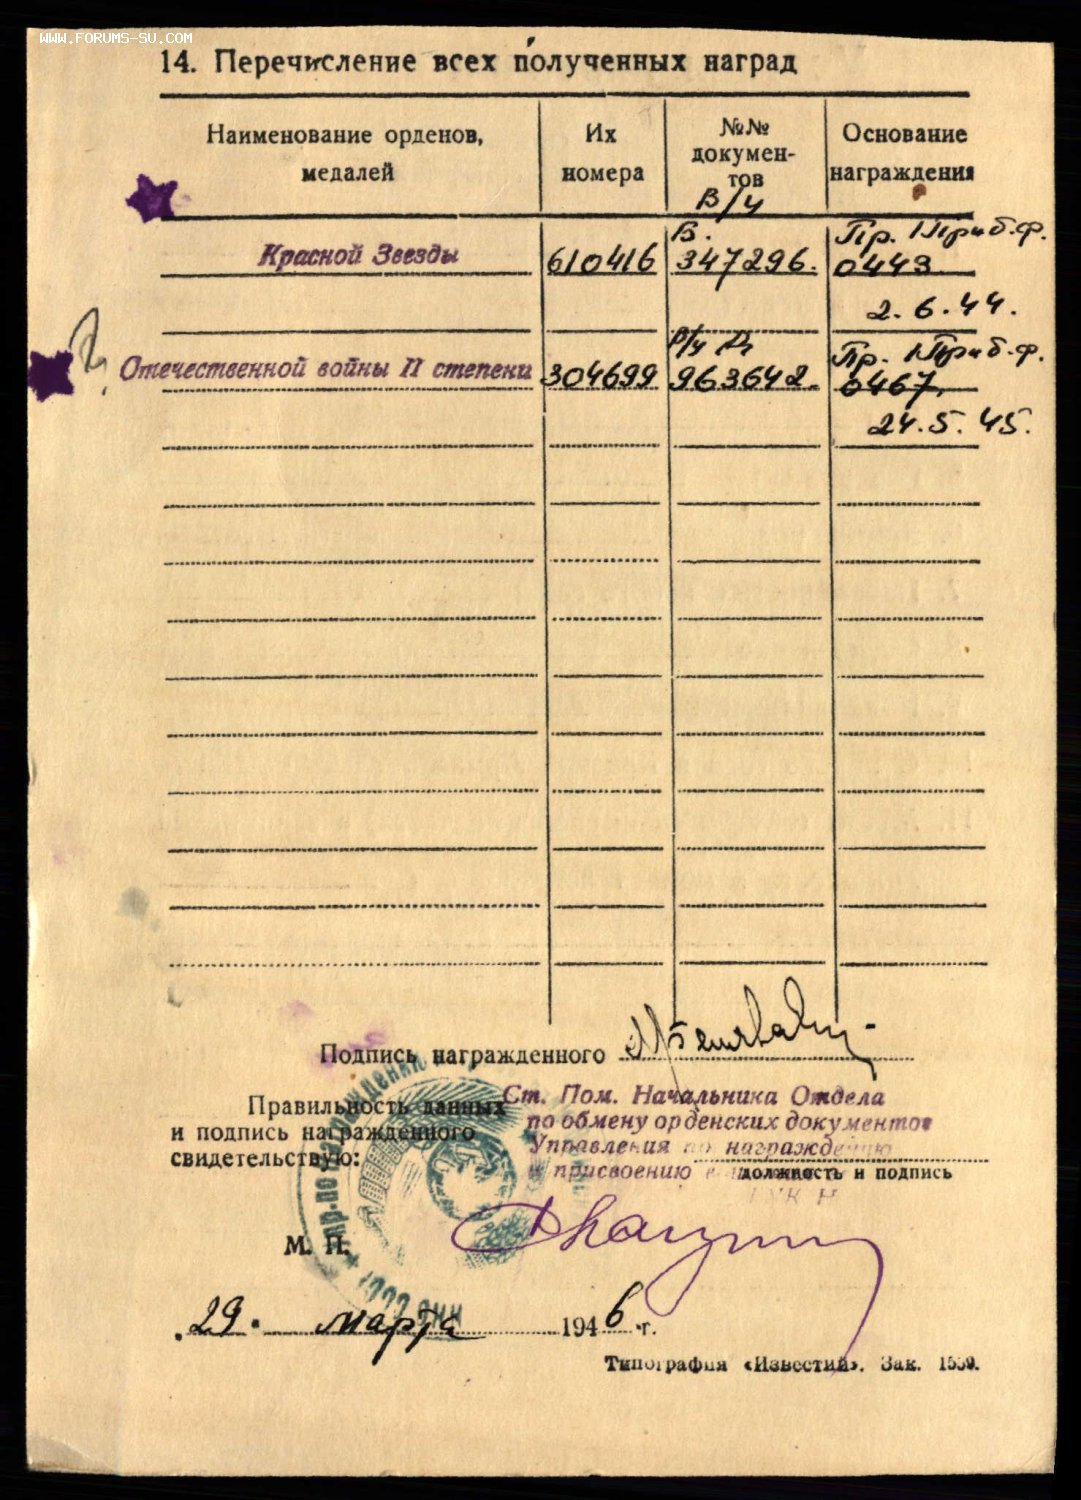 WWW.FORUMS-SU.COM
14. Перечисление всех полученных наград
Наименование орденов,
медалей
Их
номера
№№
докумен-
тов
В/ч
Основание
награждения
Красной Звезды
610416
В.
347296.
Пр. 1Приб.ф.
0443
2.6.44.
Отечественной войны II степени
304699
963642.
Пр. 1Приб.ф.
0467,
24.5.45.
Подпись награжденного
Правильность данных
и подпись награжденного
свидетельствую:
Ст. Пом. Начальника Отдела
по обмену орденских документов
Управления по награждению
и присвоению
должность и подпись
М. П.
29. марта 1946 г.
Типография «Известий». Зак. 1559.